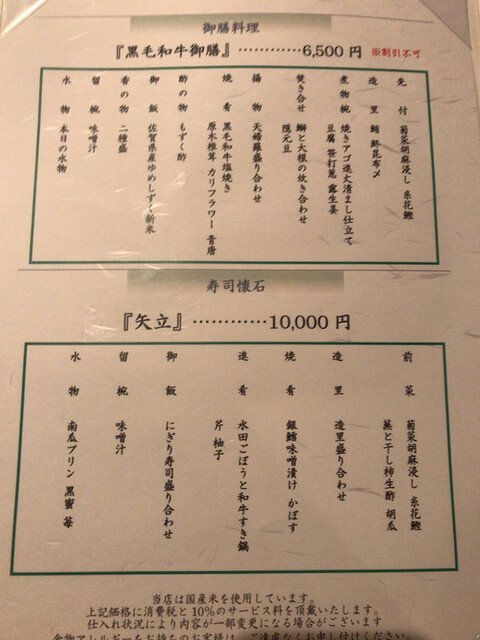 御膳料理
『黒毛和牛御膳』…………6,500 円 ※割引不可
先付 菊菜胡麻浸し 糸花鰹
造里 鮪 鮃昆布〆
煮物椀 焼きアゴ進丈清まし仕立て
豆腐 笹打葱 露生姜
焚き合せ 鰤と大根の炊き合わせ
隠元豆
揚物 天婦羅盛り合わせ
焼肴 黒毛和牛塩焼き
原木椎茸 カリフラワー 青唐
酢の物 もずく酢
御飯 佐賀県産ゆめしずく新米
香の物 二種盛
留椀 味噌汁
水物 本日の水物
寿司懐石
『矢立』…………10,000 円
前菜 菊菜胡麻浸し 糸花鰹
蕪と干し柿生酢 胡瓜
造里 造里盛り合わせ
焼肴 銀鱈味噌漬け かぼす
進肴 水田ごぼうと和牛すき鍋
芹 柚子
御飯 にぎり寿司盛り合わせ
留椀 味噌汁
水物 南瓜プリン 黒蜜 苺
当店は国産米を使用しています。
上記価格に消費税と 10%のサービス料を頂戴いたします。
仕入れ状況により内容が一部変更になる場合がございます
食物アレルギーをお持ちのお客様は、ご遠慮なくお申し付けください